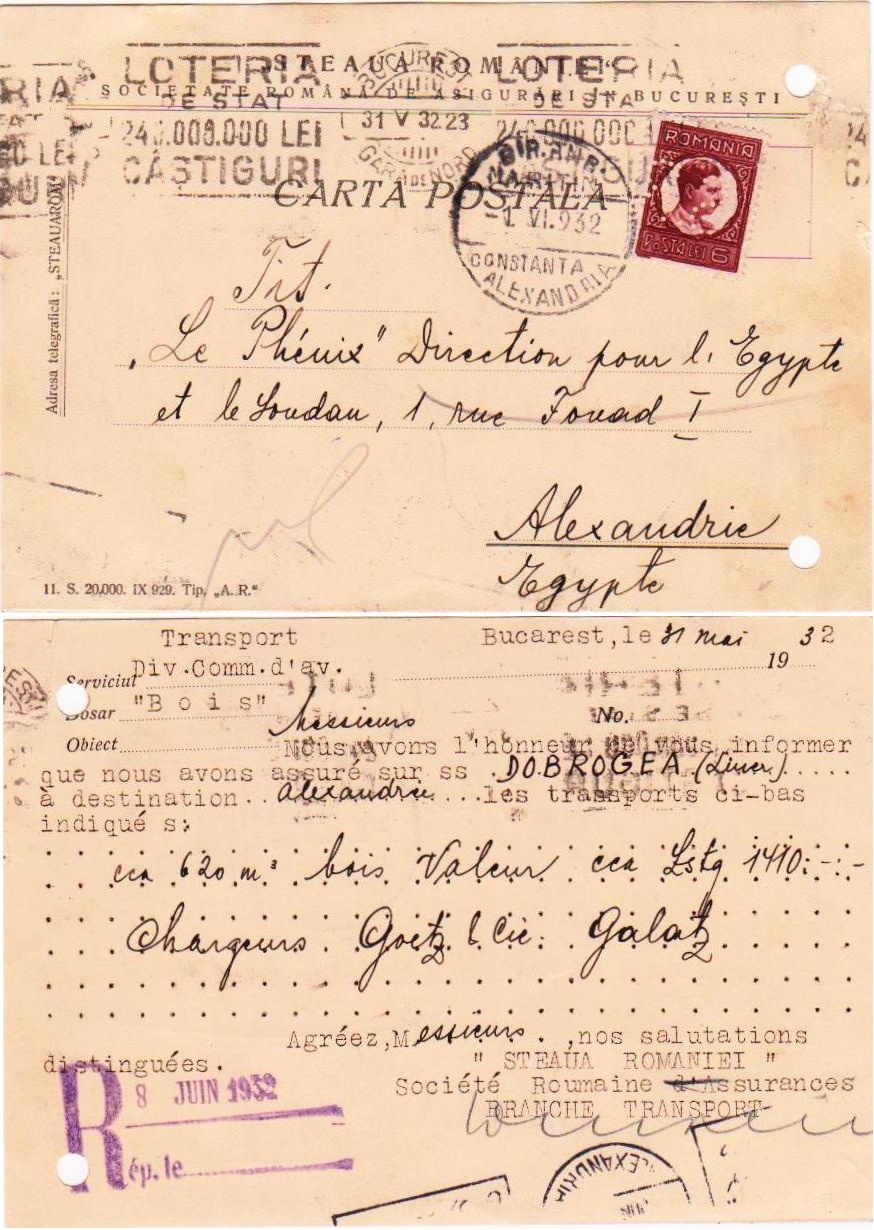 „STEAUA ROMÂNIEI“
SOCIETATE ROMÂNĂ DE ASIGURĂRI ÎN BUCUREȘTI
LOTERIA
DE STAT
240.000.000 LEI
CÂȘTIGURI
BUCUREȘTI
31 V 32.23
GARA DE NORD
LOTERIA
DE STA
240.000.000
CARTA POSTALĂ
1. VI. 932
CONSTANTA
ALEXANDRIA
ROMANIA
POSTA LEI 6
Adresa telegrafică: „STEAUAROM“
Tit.
„Le Phénix" Direction pour l. Egypte
et le Soudan, 1, rue Fouad I
Alexandrie
Egypte
11. S. 20.000. IX 929. Tip. „A. R.“
Transport
Bucarest, le 31 mai 1932
Serviciul Div.Comm.d'av.
Dosar "B o i s"
No.
Obiect
Messieurs
Nous avons l'honneur de vous informer
que nous avons assuré sur ss DOBROGEA (Liner)
à destination Alexandrie les transports ci-bas
indiqué s:
cca 620 m³ bois Valeur cca Lstg 1410:-:-
Chargeurs Goetz & Cie. Galatz
Agréez, Messieurs, nos salutations
distinguées.
" STEAUA ROMANIEI "
Société Roumaine d'Assurances
BRANCHE TRANSPORT
R 8 JUIN 1932
ép. le
ALEXANDRIA